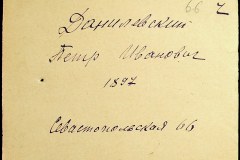 66 7
Данилевский
Петр Иванович
1897
Севастопольская 66